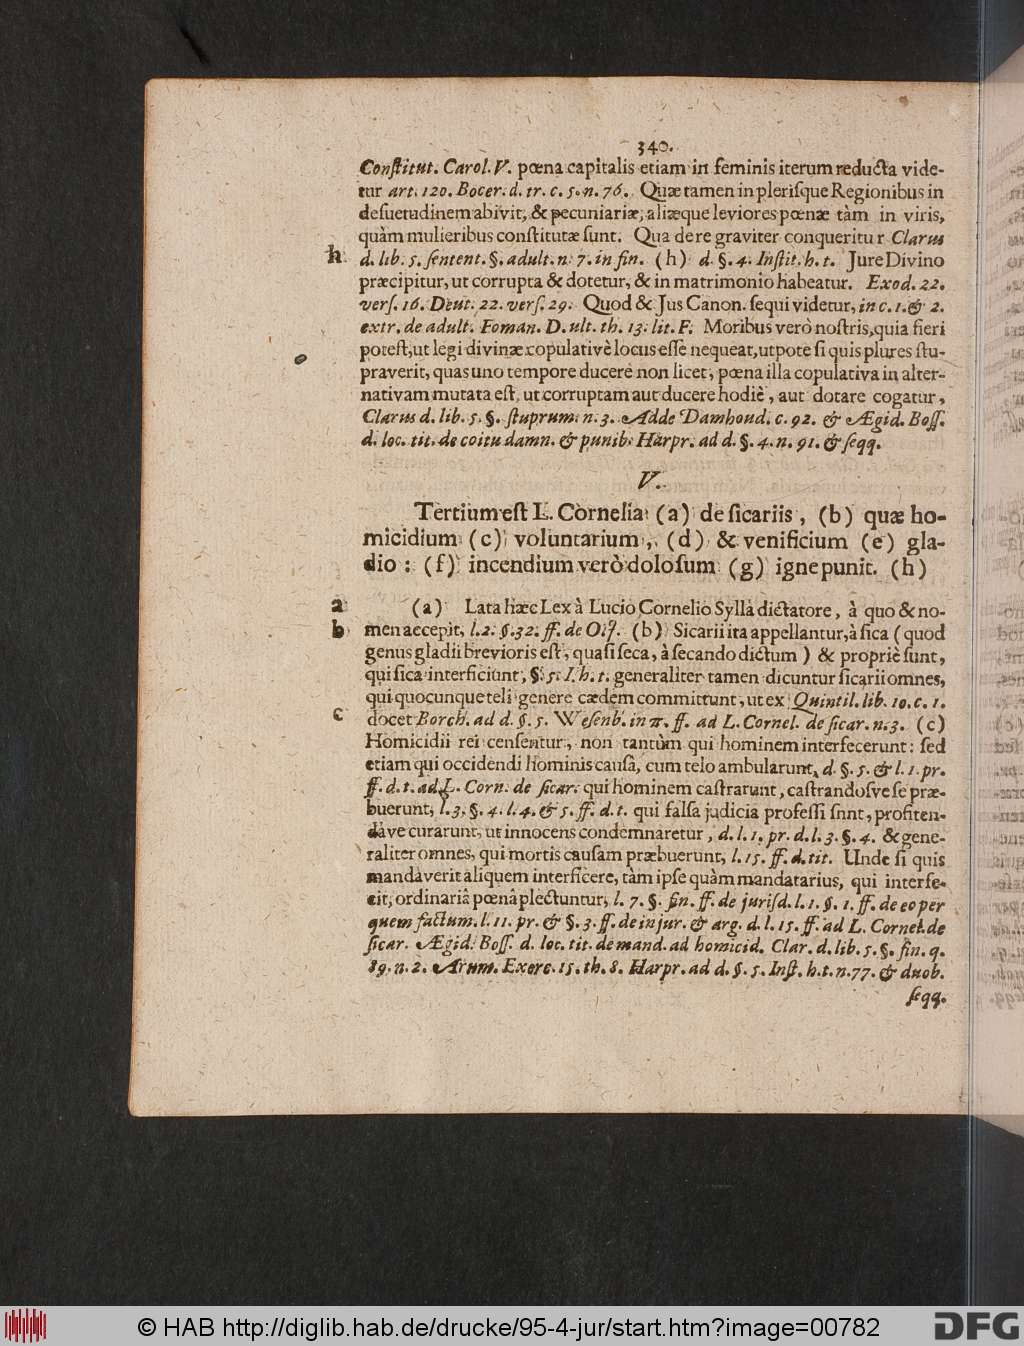 340.
Constitut. Carol. V. pœna capitalis etiam in feminis iterum reducta vide-
tur art. 120. Bocer. d. tr. c. 5. n. 76. Quæ tamen in plerisque Regionibus in
desuetudinem abivit, & pecuniariæ, aliæque leviores pœnæ tàm in viris,
quàm mulieribus constitutæ sunt. Qua de re graviter conqueritur Clarus
h d. lib. 5. sentent. §. adult. n. 7. in fin. (h) d. §. 4. Instit. h. t. Jure Divino
præcipitur, ut corrupta & dotetur, & in matrimonio habeatur. Exod. 22.
vers. 16. Deut. 22. vers. 29. Quod & Jus Canon. sequi videtur, in c. 1. & 2.
extr. de adult. Foman. D. ult. th. 13. lit. F. Moribus verò nostris, quia fieri
potest, ut legi divinæ copulativè locus esse nequeat, utpote si quis plures stu-
praverit, quas uno tempore ducere non licet, pœna illa copulativa in alter-
nativam mutata est, ut corruptam aut ducere hodiè, aut dotare cogatur,
Clarus d. lib. 5. §. stuprum. n. 3. Adde Damhoud. c. 92. & Ægid. Boss.
d. loc. tit. de coitu damn. & punib. Harpr. ad d. §. 4. n. 91. & seqq.
V.
Tertium est L. Cornelia (a) de sicariis, (b) quæ ho-
micidium (c) voluntarium, (d) & venificium (e) gla-
dio: (f) incendium verò dolosum (g) igne punit. (h)
a (a) Lata hæc Lex à Lucio Cornelio Sylla dictatore, à quo & no-
b men accepit, l. 2. §. 32. ff. de OJ. (b) Sicarii ita appellantur, à sica (quod
genus gladii brevioris est, quasi seca, à secando dictum) & propriè sunt,
qui sica interficiunt, §. 5. I. h. t. generaliter tamen dicuntur sicarii omnes,
qui quocunque teli genere cædem committunt, ut ex Quintil. lib. 10. c. 1.
c docet Borch. ad d. §. 5. Wesenb. in π. ff. ad L. Cornel. de sicar. n. 3. (c)
Homicidii rei censentur, non tantùm qui hominem interfecerunt: sed
etiam qui occidendi hominis causâ, cum telo ambularunt, d. §. 5. & l. 1. pr.
ff. d. t. ad L. Corn. de sicar. qui hominem castrarunt, castrandosve se præ-
buerunt, l. 3. §. 4. l. 4. & 5. ff. d. t. qui falsa judicia professi snnt, profiten-
dáve curarunt, ut innocens condemnaretur, d. l. 1. pr. d. l. 3. §. 4. & gene-
raliter omnes, qui mortis causam præbuerunt, l. 15. ff. d. tit. Unde si quis
mandaverit aliquem interficere, tàm ipse quàm mandatarius, qui interfe-
cit, ordinariâ pœnâ plectuntur, l. 7. §. fin. ff. de jurisd. l. 1. §. 1. ff. de eo per
quem factum. l. 11. pr. & §. 3. ff. de injur. & arg. d. l. 15. ff. ad L. Cornel. de
sicar. Ægid. Boss. d. loc. tit. de mand. ad homicid. Clar. d. lib. 5. §. fin. q.
89. n. 2. Arum. Exerc. 15. th. 8. Harpr. ad d. §. 5. Inst. h. t. n. 77. & duob.
seqq.
© HAB http://diglib.hab.de/drucke/95-4-jur/start.htm?image=00782
DFG